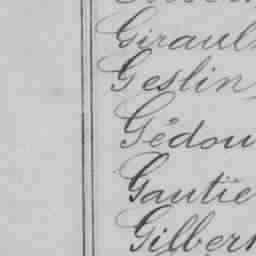 Girault
Geslin
Gédou
Gautie
Gilber